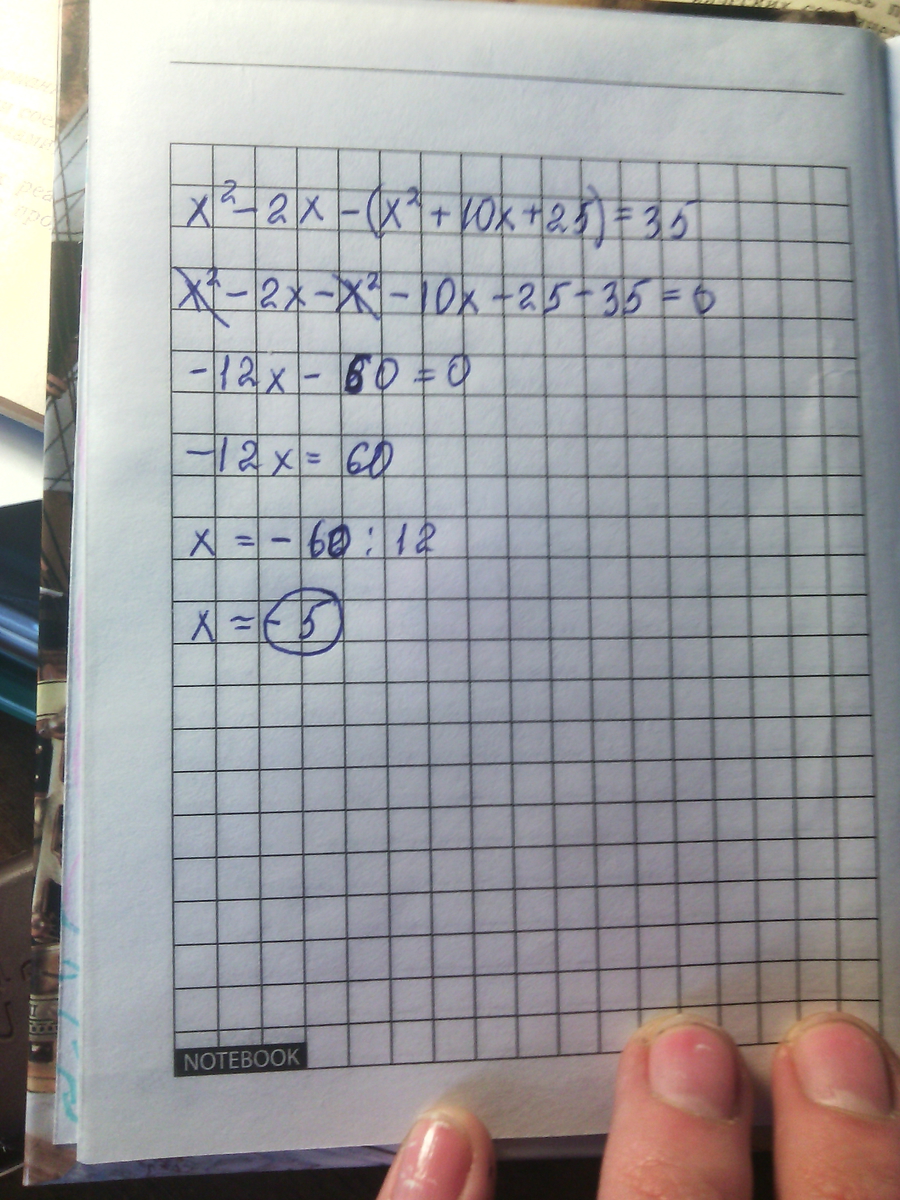 x² - 2x - (x² + 10x + 25) = 35
x² - 2x - x² - 10x - 25 - 35 = 0
-12x - 60 = 0
-12x = 60
x = - 60 : 12
x = - 5
NOTEBOOK